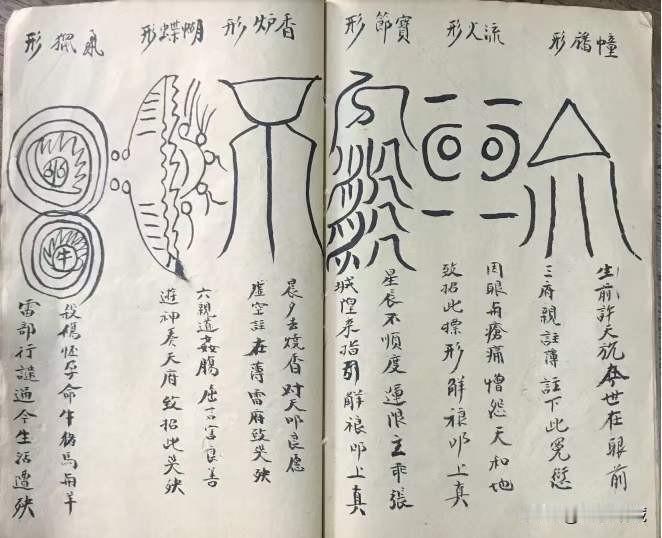 幢旛形
生前許天説今世在眼前
三府親註薄註下此冤愆
流火形
因眼與瘡痛憎怨天和地
致招此標形解禳叩上真
寶節形
星辰不順度運限主乖張
城惶来指引解禳叩上真
香炉形
晨夕去燒香对天叩良愿
虚空註在薄雷府致災殃
蝴蝶形
六親道姦腸伍言宮良善
遊神奏天府致招此災殃
形
殺傷怪孕命牛猪馬與羊
雷部行譴過今生活遭殃